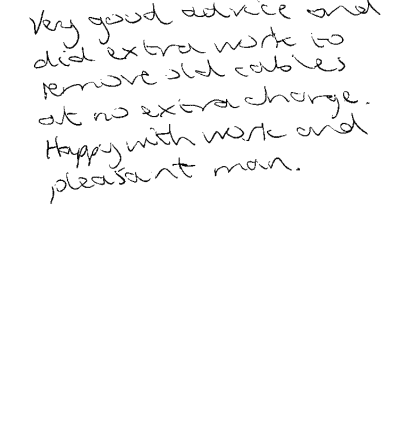 Very good advice and
did extra work to
remove old cables
at no extra charge.
Happy with work and
pleasant man.